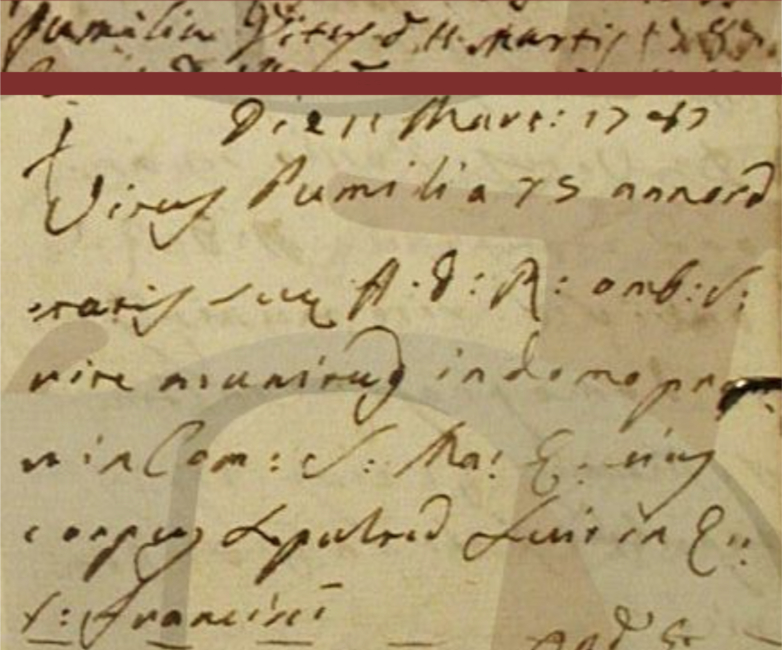 Pumilia Vitus d 11 Martij 1787
Die 11 Mart: 1787
Vitus Pumilia 75 annorũ
etatis suę A. d: R: omb: S:
rite munitus in domo propr
in Com: S: Ma: E. eius
corpus sepultũ fuit in Ec:
S: Francisci